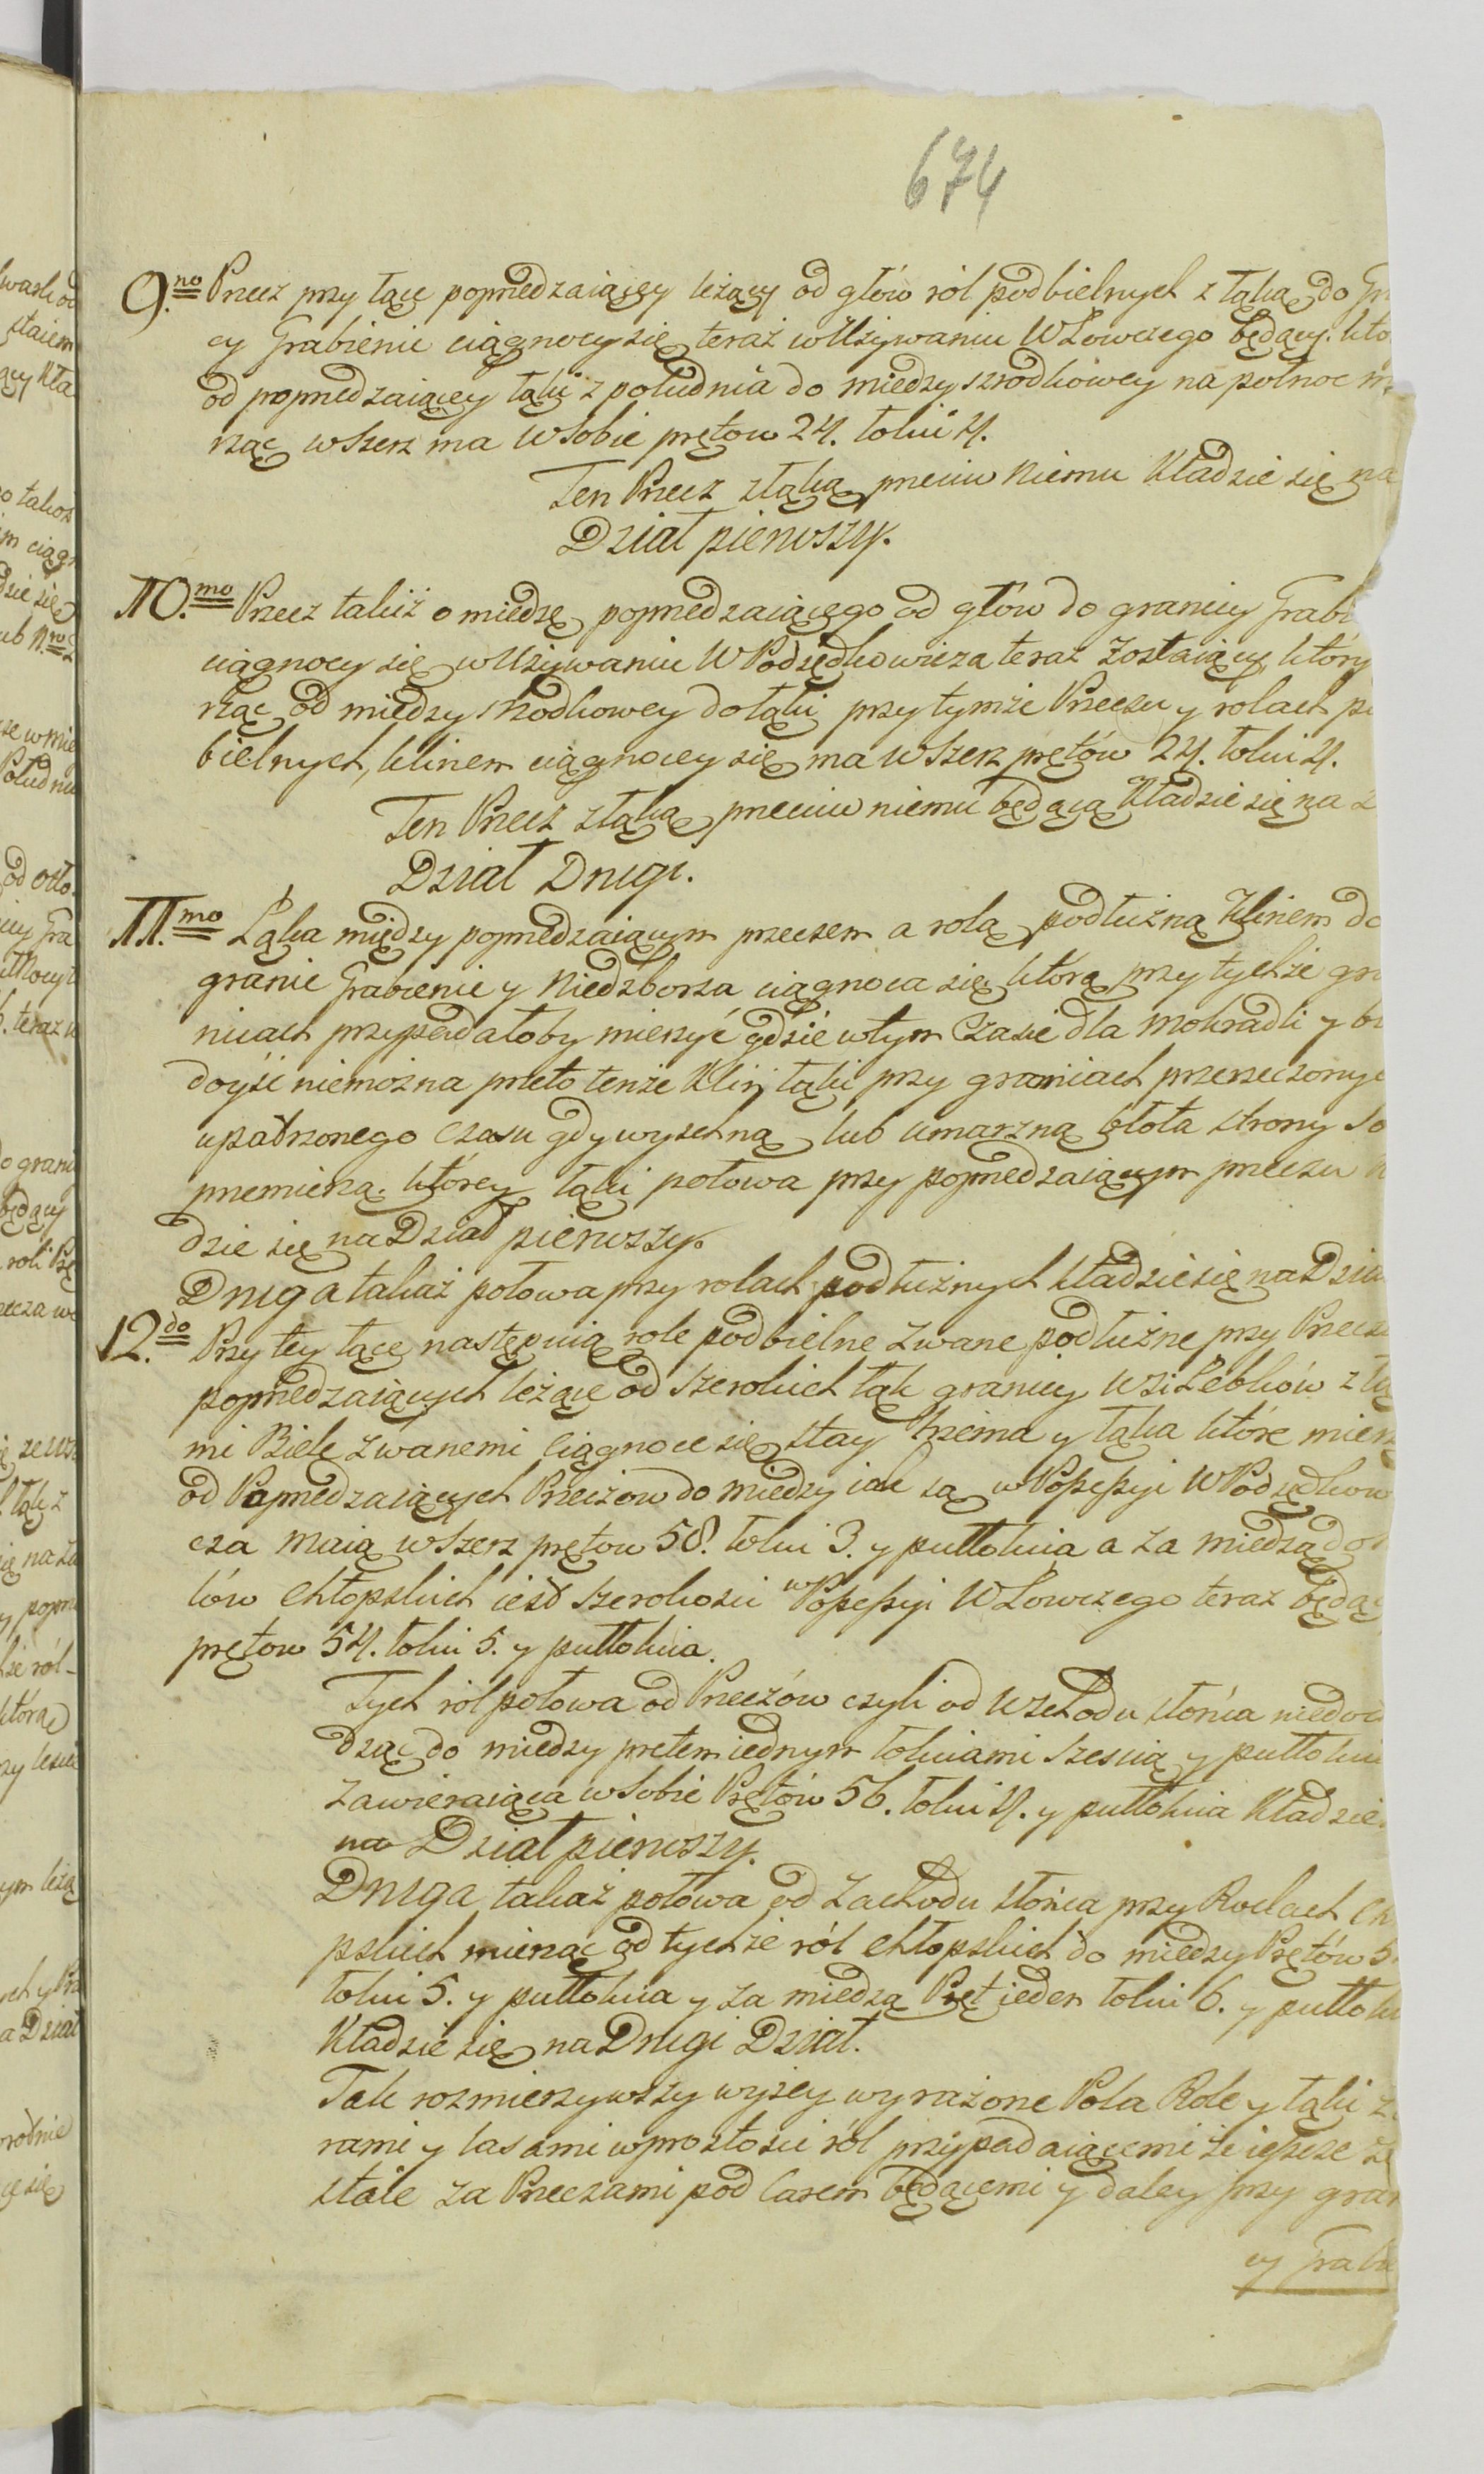 674
9.no Przecz przy łące poprzedzaiącey leżący od głów ról podbielnych z łąką do Gr
cy Grabienic ciągnocy się teraz w Używaniu W Łowczego będący. któ
od poprzedzaiącey łąki z południa do miedzy szrodkowey na połnoc m
rząc wszerz ma w sobie prętow 24. łokci 4.
Ten Przecz z łąką przeciw Niemu Kładzie się na
Dział pierwszy.
10.mo Przecz takiż o miedzę poprzedzaiącego od głów do granicy Grabi
ciągnocy się w Używaniu W Podsędkowicza teraz zostaiący, który
rząc od miedzy szrodkowey do łąki przy tymże Przeczu y rolach p
bielnych, klinem ciągnocey się ma wszerz prętów 24. łokci 4.
Ten Przecz z łąką przeciw niemu będącą Kładzie się na
Dział Drugi.
11.mo Łąka między poprzedzaiącym przeczem a rolą podłużną Klinem do
granic Grabienic y Niedzborza ciągnoca się, którą przy tychże gra
nicach przypadałoby mierzyć gdzie w tym Czasie dla mokradli y bł
doyść niemożna przeto tenże Klin łąki przy graniach przerzeczonyc
upatrzonego Czasu gdy wyschną lub umarzną błota strony so
przemierzą. którey łąki połowa przy poprzedzaiącym przeczu K
dzie się na Dział pierwszy.
Druga takaż połowa przy rolach podłużnych kładzie się na Dzia
12.do Przy tey łące następuią role podbielne zwane podłużne przy Przecza
poprzedzaiących leżące od szerokich łąk granicy Wsi Łebków z łą
mi Biele zwanemi ciągnoce się stay trzema y łąka które mierz
od Poprzedzaiących Przeczow do miedzy iak są w Possessyi W Podsędkow
cza maią wszerz prętow 58. łokci 3. y pułłokcia a za miedzą do
lów Chłopskich iest szerokosci w Possessyi W Łowczego teraz będąc
prętow 54. łokci 5. y pułłokcia.
Tych rol połowa od Przeczów czyli od Wschodu słońca niedoc
dząc do miedzy prętem iednym łokciami szescią y pułłokci
zawieraiąca w sobie Prętów 56. łokci 4. y pułłokcia Kładzie
na Dział pierwszy.
Druga takaż połowa od Zachodu słońca przy Rolach Ch
pskich mierząc od tychże ról Chłopskich do miedzy Prętów 5
łokci 5. y pułłokcia y za miedzą Pręt ieden łokci 6. y pułłok
Kładzie się na Drugi Dział.
Tak rozmierzywszy wyżey wyrażone Pola Role y łąki z
rami y lasami w prostosci ról przypadaiącemi że ieszcze
staie za Przeczami pod lasem będącemi y daley przy gran
cy Grabi